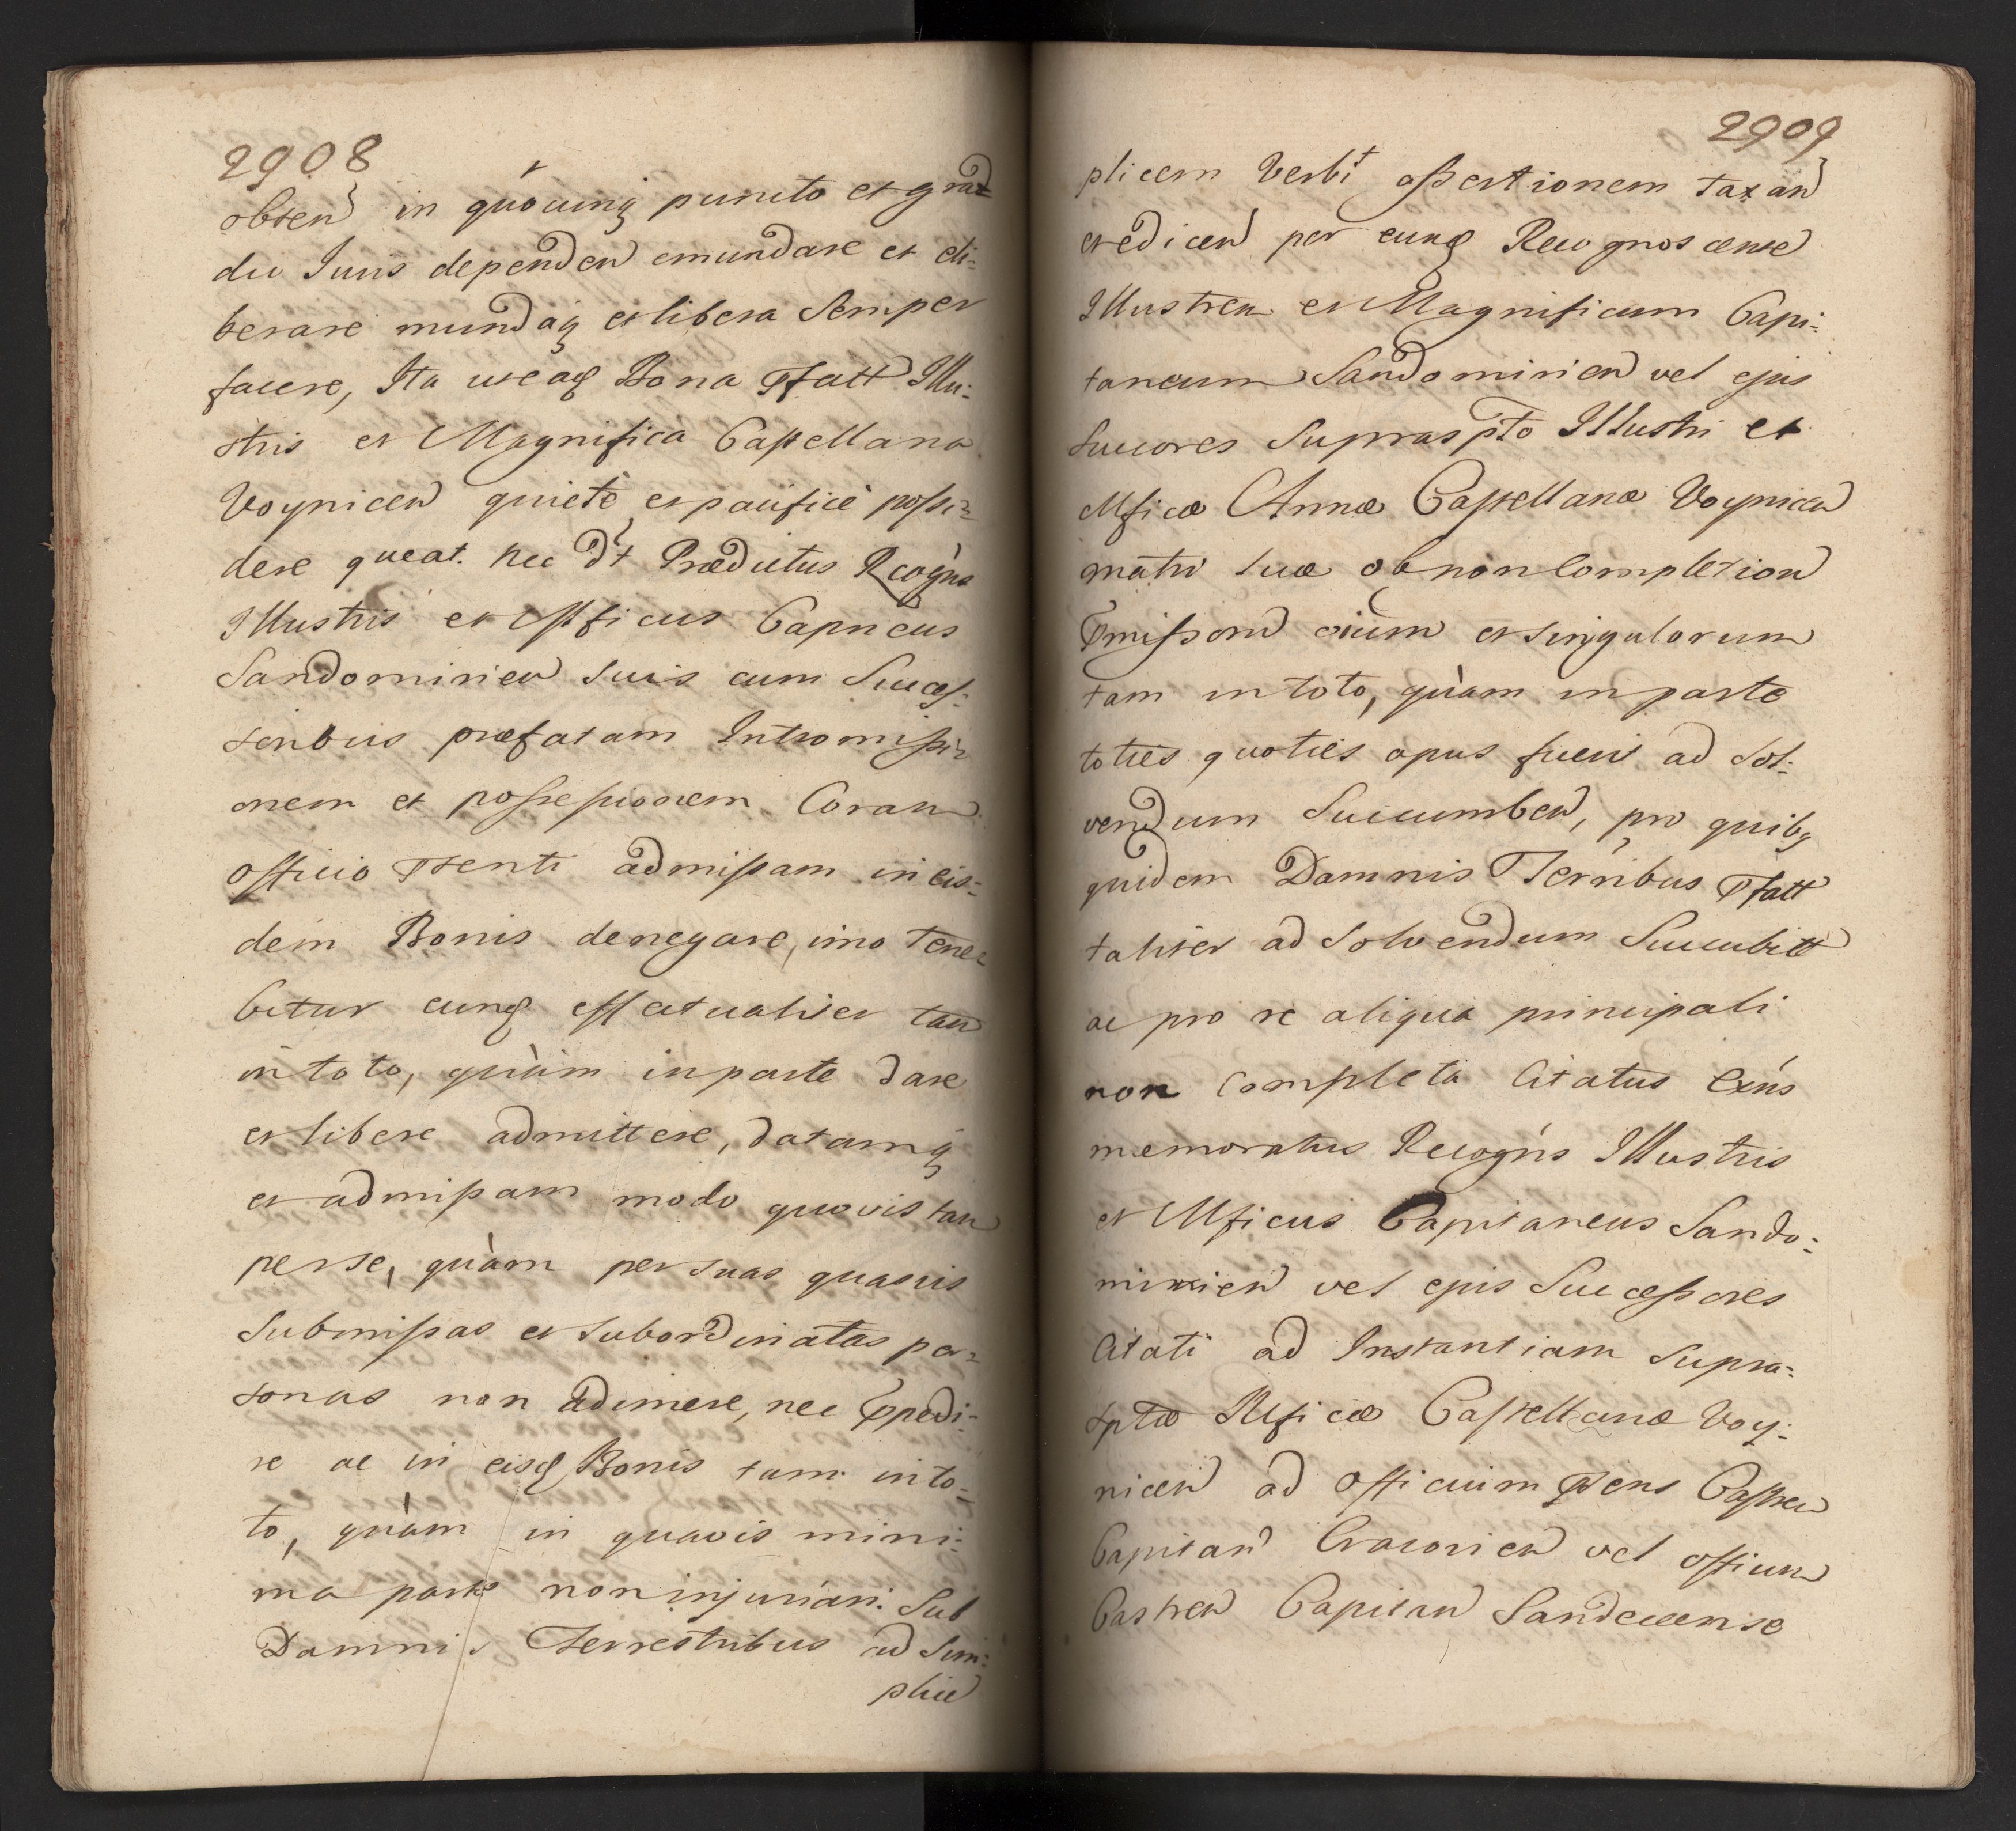 2908
obten in quocunq puncto et grad
du Juris dependen emundare et eli-
berare mundaq et libera Semper
facere, Ita ut eaq Bona Pfatt Illu-
stris et Magnifica Castellana
Voynicen quietè et pacificè possi-
dere queat. Nec dt Prædictus Recogns
Illustris et Mficus Capneus
Sandomirien suis cum Succes-
soribus præfatam Intromissi-
onem et possessionem Coram
officio Psenti admissam in eis-
dem Bonis denegare, imo tene-
bitur eunq effectualiter tam
in toto, quàm in parte dare
et libere admittere, datamq
et admissam modo quovis tam
per se, quàm per suas quasvis
Submissas et subordinatas per-
sonas non adimere, nec Impedi-
re ac in eisq Bonis tam in to-
to, quàm in quavis mini-
ma parte non injuriari. Sub
Damnis Terrestribus ad Sim-
plice
2909
plicem Verbi assertionem taxan
et edicen per eunq Recognoscente
Illustrem et Magnificum Capi-
taneum Sandomirien vel ejus
succores supraspto Illustri et
Mficæ Annæ Castellanæ Voynicen
matri suæ ob non Completion
Pmissoru oium et singulorum
tam in toto, quàm in parte
toties quoties opus fuerit ad sol-
vendum Succumben, pro quibq
quidem Damnis Terribus Pfatt
taliter ad solvendum Succubitt
ac pro re aliqua principali
non completa Citatus Exns
memoratus Recogns Illustris
et Mficus Capitaneus Sando-
mirien vel ejus Successores
Citati ad Instantiam supra-
sptæ Mficæ Castellanæ Voy-
nicen ad officium Psens Castren
Capitan Cracovien vel offium
Castren Capitan Sandecense